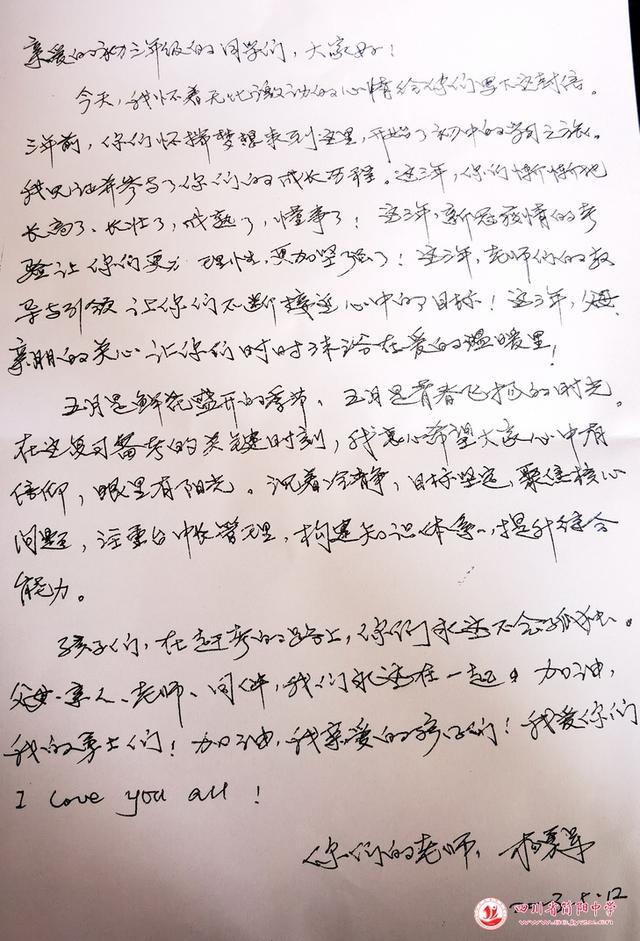 亲爱的初三年级的同学们，大家好！
今天，我怀着无比激动的心情给你们写下这封信。
三年前，你们怀揣梦想来到这里，开始了初中的学习之旅。
我见证并参与了你们的成长历程。这三年，你们渐渐地
长高了、长壮了，成熟了，懂事了！这三年，新冠疫情的考
验让你们更为理性，更加坚强了！这三年，老师们的教
导与引领让你们不断接近心中的目标！这三年，父母、
亲朋的关心让你们时时沐浴在爱的温暖里！
五月是鲜花盛开的季节，五月是青春飞扬的时光。
在这复习备考的关键时刻，我衷心希望大家心中有
信仰，眼里有阳光。沉着冷静，目标坚定，聚焦核心
问题，注重台中长管理，构建知识体系，提升综合
能力。
孩子们，在赶考的路上，你们永远不会孤独。
父母、亲人、老师、同伴，我们永远在一起。加油，
我的勇士们！加油，我亲爱的孩子们！我爱你们
I love you all！
你们的老师：杨
3.5.12
四川省简阳中学